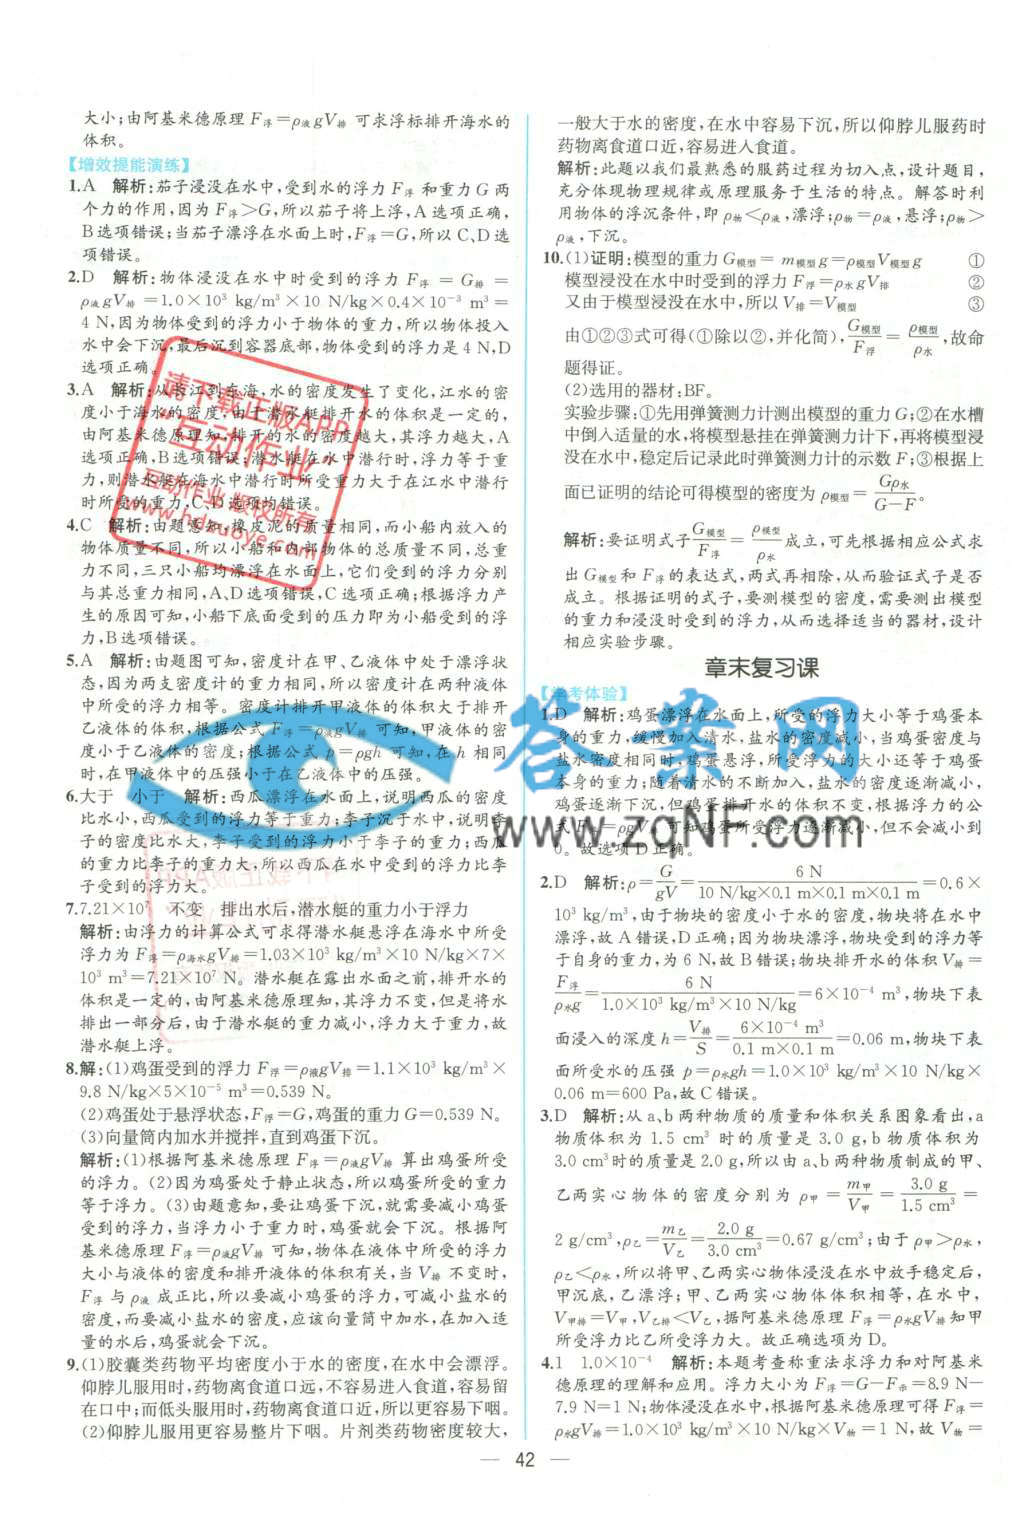 大小;由阿基米德原理 F浮=ρ液gV排 可求浮标排开海水的
体积。
【增效提能演练】
1.A 解析:茄子浸没在水中,受到水的浮力 F浮 和重力 G 两
个力的作用,因为 F浮>G,所以茄子将上浮,A 选项正确,
B 选项错误;当茄子漂浮在水面上时,F浮=G,所以 C、D 选
项错误。
2.D 解析:物体浸没在水中时受到的浮力 F浮 = G排 =
ρ液gV排=1.0×10³ kg/m³×10 N/kg×0.4×10⁻³ m³=
4 N,因为物体受到的浮力小于物体的重力,所以物体投入
水中会下沉,最后沉到容器底部,物体受到的浮力是 4 N,D
选项正确。
3.A 解析:从长江到东海,水的密度发生了变化,江水的密
度小于海水的密度,由于潜水艇排开水的体积是一定的,
由阿基米德原理知,排开的水的密度越大,其浮力越大,A
选项正确,B 选项错误;潜水艇在水中潜行时,浮力等于重
力,则潜水艇在海水中潜行时所受重力大于在江水中潜行
时所受的重力,C、D 选项均错误。
4.C 解析:由题意知,橡皮泥的质量相同,而小船内放入的
物体质量不同,所以小船和内部物体的总质量不同,总重
力不同,三只小船均漂浮在水面上,它们受到的浮力分别
与其总重力相同,A、D 选项错误,C 选项正确;根据浮力产
生的原因可知,小船下底面受到的压力即为小船受到的浮
力,B 选项错误。
5.A 解析:由题图可知,密度计在甲、乙液体中处于漂浮状
态,因为两支密度计的重力相同,所以密度计在两种液体
中所受的浮力相等。密度计排开甲液体的体积大于排开
乙液体的体积,根据公式 F浮=ρ液gV排 可知,甲液体的密
度小于乙液体的密度;根据公式 p=ρgh 可知,在 h 相同
时,在甲液体中的压强小于在乙液体中的压强。
6.大于 小于 解析:西瓜漂浮在水面上,说明西瓜的密度
比水小,西瓜受到的浮力等于重力;李子沉于水中,说明李
子的密度比水大,李子受到的浮力小于李子的重力;西瓜
的重力比李子的重力大,所以西瓜在水中受到的浮力比李
子受到的浮力大。
7.7.21×10⁷ 不变 排出水后,潜水艇的重力小于浮力
解析:由浮力的计算公式可求得潜水艇悬浮在海水中所受
浮力为 F浮=ρ海水gV排=1.03×10³ kg/m³×10 N/kg×7×
10³ m³=7.21×10⁷ N。潜水艇在露出水面之前,排开水的
体积是一定的,由阿基米德原理知,其浮力不变,但是将水
排出一部分后,由于潜水艇的重力减小,浮力大于重力,故
潜水艇上浮。
8.解:(1)鸡蛋受到的浮力 F浮=ρ液gV排=1.1×10³ kg/m³×
9.8 N/kg×5×10⁻⁵ m³=0.539 N。
(2)鸡蛋处于悬浮状态,F浮=G,鸡蛋的重力 G=0.539 N。
(3)向量筒内加水并搅拌,直到鸡蛋下沉。
解析:(1)根据阿基米德原理 F浮=ρ液gV排 算出鸡蛋所受
的浮力。(2)因为鸡蛋处于静止状态,所以鸡蛋所受的重力
等于浮力。(3)由题意知,要让鸡蛋下沉,就需要减小鸡蛋
受到的浮力,当浮力小于重力时,鸡蛋就会下沉。根据阿
基米德原理 F浮=ρ液gV排 可知,物体在液体中所受的浮力
大小与液体的密度和排开液体的体积有关,当 V排 不变时,
F浮 与 ρ液 成正比,所以要减小鸡蛋的浮力,可减小盐水的
密度,而要减小盐水的密度,应该向量筒中加水,在加入适
量的水后,鸡蛋就会下沉。
9.(1)胶囊类药物平均密度小于水的密度,在水中会漂浮。
仰脖儿服用时,药物离食道口远,不容易进入食道,容易留
在口中;而低头服用时,药物离食道口近,所以更容易下咽。
(2)仰脖儿服用更容易整片下咽。片剂类药物密度较大,
一般大于水的密度,在水中容易下沉,所以仰脖儿服药时
药物离食道口近,容易进入食道。
解析:此题以我们最熟悉的服药过程为切入点,设计题目,
充分体现物理规律或原理服务于生活的特点。解答时利
用物体的浮沉条件,即 ρ物<ρ液,漂浮;ρ物=ρ液,悬浮;ρ物>
ρ液,下沉。
10.(1)证明:模型的重力 G模型=m模型g=ρ模型V模型g ①
模型浸没在水中时受到的浮力 F浮=ρ水gV排 ②
又由于模型浸没在水中,所以 V排=V模型 ③
由①②③式可得(①除以②,并化简),G模型/F浮=ρ模型/ρ水,故命
题得证。
(2)选用的器材:BF。
实验步骤:①先用弹簧测力计测出模型的重力 G;②在水槽
中倒入适量的水,将模型悬挂在弹簧测力计下,再将模型浸
没在水中,稳定后记录此时弹簧测力计的示数 F;③根据上
面已证明的结论可得模型的密度为 ρ模型=Gρ水/(G-F)。
解析:要证明式子G模型/F浮=ρ模型/ρ水成立,可先根据相应公式求
出 G模型 和 F浮 的表达式,两式再相除,从而验证式子是否
成立。根据证明的式子,要测模型的密度,需要测出模型
的重力和浸没时受到的浮力,从而选择适当的器材,设计
相应实验步骤。
章末复习课
1.D 解析:鸡蛋漂浮在水面上,所受的浮力大小等于鸡蛋本
身的重力,缓慢加入清水,盐水的密度减小,当鸡蛋密度与
盐水密度相同时,鸡蛋悬浮,所受浮力的大小还等于鸡蛋
本身的重力;随着清水的不断加入,盐水的密度逐渐减小,
鸡蛋逐渐下沉,但鸡蛋排开水的体积不变,根据浮力的公
式 F浮=ρgV排 可知鸡蛋所受浮力逐渐减小,但不会减小到
0。故选项 D 正确。
2.D 解析:ρ=G/gV=6 N/(10 N/kg×0.1 m×0.1 m×0.1 m)=0.6×
10³ kg/m³,由于物块的密度小于水的密度,物块将在水中
漂浮,故 A 错误,D 正确;因为物块漂浮,物块受到的浮力等
于自身的重力,为 6 N,故 B 错误;物块排开水的体积 V排=
F浮/ρ水g=6 N/(1.0×10³ kg/m³×10 N/kg)=6×10⁻⁴ m³,物块下表
面浸入的深度 h=V排/S=6×10⁻⁴ m³/(0.1 m×0.1 m)=0.06 m,物块下表
面所受水的压强 p=ρ水gh=1.0×10³ kg/m³×10 N/kg×
0.06 m=600 Pa,故 C 错误。
3.D 解析:从 a、b 两种物质的质量和体积关系图象看出,a
物质体积为 1.5 cm³ 时的质量是 3.0 g,b 物质体积为
3.0 cm³时的质量是 2.0 g,所以由 a、b 两种物质制成的甲、
乙两实心物体的密度分别为 ρ甲=m甲/V甲=3.0 g/1.5 cm³=
2 g/cm³,ρ乙=m乙/V乙=2.0 g/3.0 cm³=0.67 g/cm³;由于 ρ甲>ρ水,
ρ乙<ρ水,所以将甲、乙两实心物体浸没在水中放手稳定后,
甲沉底,乙漂浮;甲、乙两实心物体体积相等,在水中,
V甲排=V甲,V乙排<V乙,据阿基米德原理 F浮=ρ水gV排 知甲
所受浮力比乙所受浮力大。故正确选项为 D。
4.1 1.0×10⁻⁴ 解析:本题考查称重法求浮力和对阿基米
德原理的理解和应用。浮力大小为 F浮=G-F示=8.9 N-
7.9 N=1 N;物体浸没在水中,根据阿基米德原理可得 F浮=
ρ水gV排=1.0×10³ kg/m³×10 N/kg×V物=1 N,故 V物=
— 42 —
请下载正版APP
“互动作业”
互动作业 版权所有
www.hdzuoye.com
答案网
www.zqNF.com